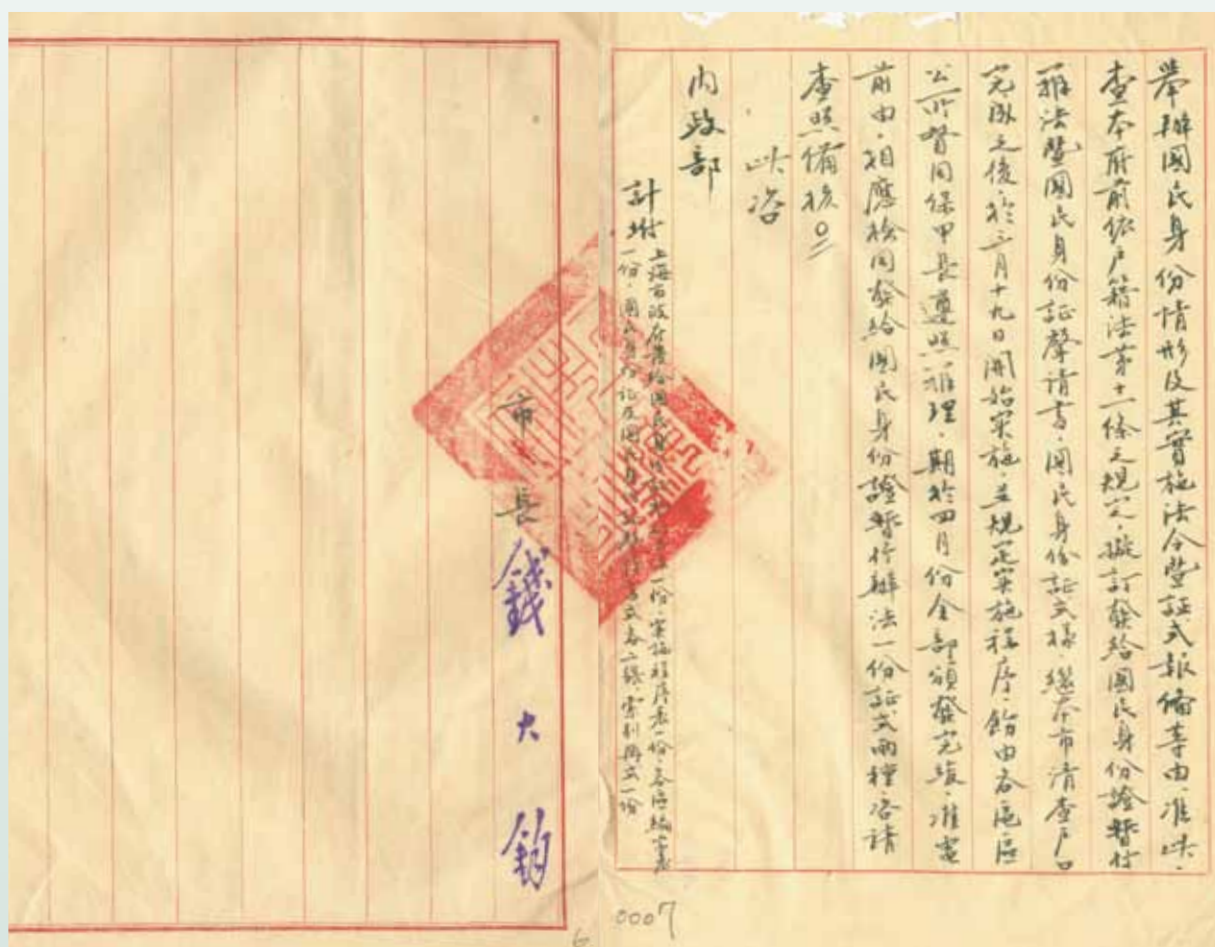 舉辦國民身份情形及其實施法令暨証式報備等由·准此·
查本府前依户籍法第十一條之規定·擬訂發給國民身份證暫行
辦法暨國民身份証聲請書·國民身份証式樣·繼本市清查户口
完成之後·於三月十九日開始实施·並規定实施程序·飭由各區區
公所督同保甲長遵照辦理·期於四月份全部頒發完竣·准電
前由·相應檢同發給國民身份證暫行辦法一份証式兩種·咨請
查照備核
此咨
内政部
計坿
上海市政府發給國民身份証一份·实施程序表一份·各區編
一份·國民身份証及國民身份証式各二張·索引冊式一份
市長 錢大鈞
0007
6